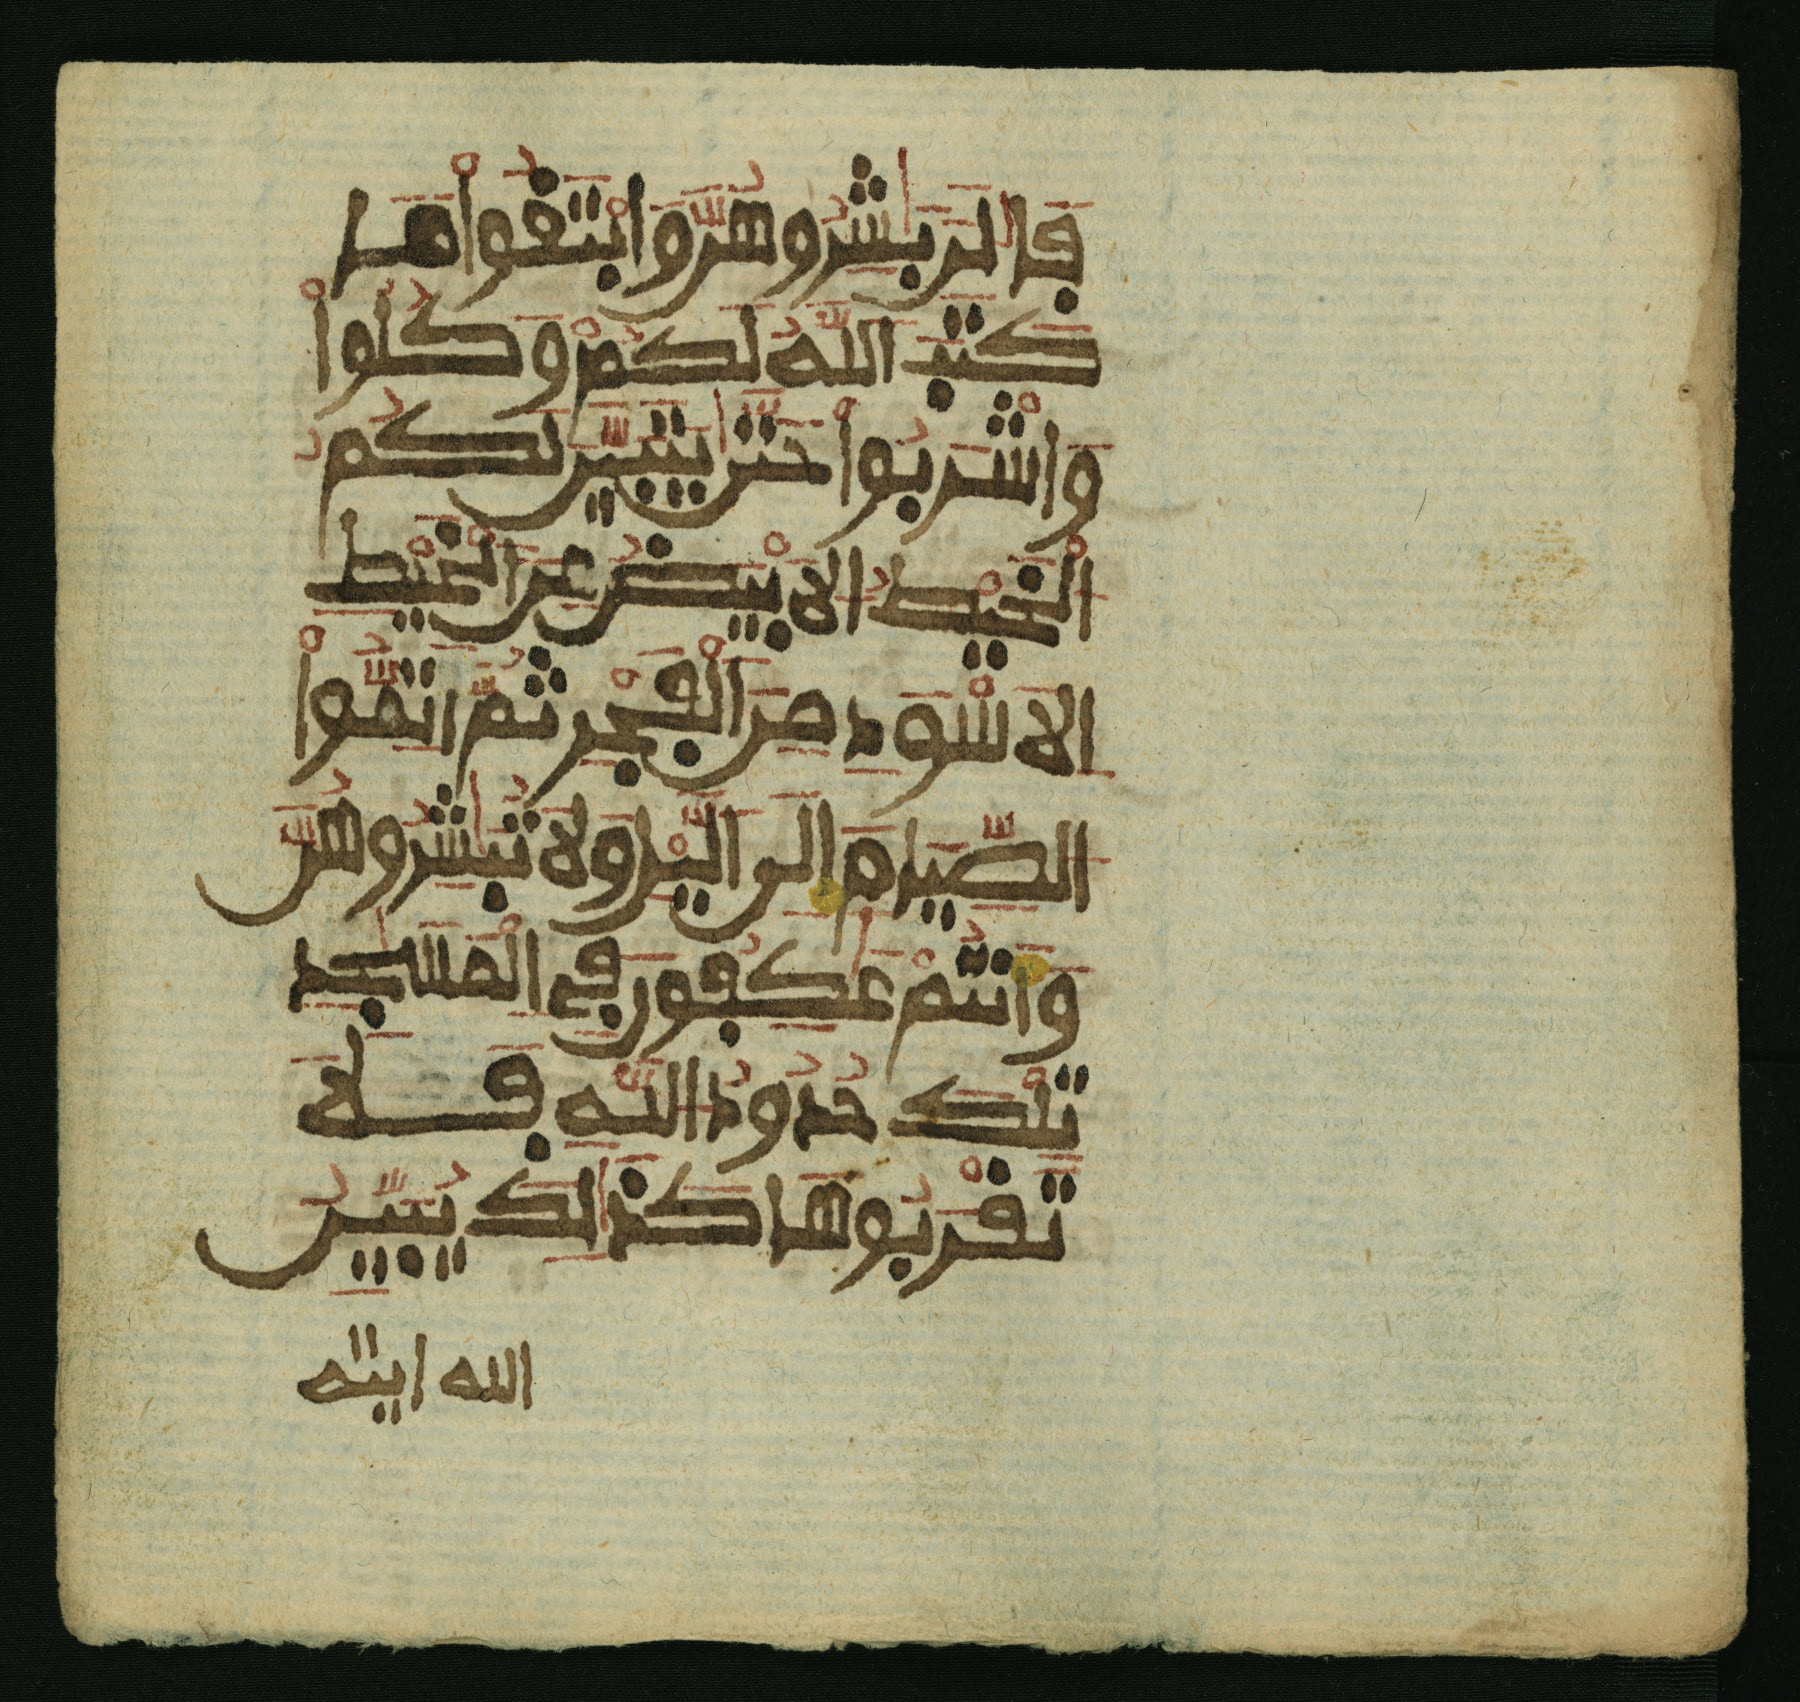 فَالَٰنَ بَٰشِرُوهُنَّ وَابْتَغُوا۟ مَا
كَتَبَ اللَّهُ لَكُمْ وَكُلُوا۟
وَاشْرَبُوا۟ حَتَّىٰ يَتَبَيَّنَ لَكُمُ
الْخَيْطُ الَابْيَضُ مِنَ الْخَيْطِ
الَاسْوَدِ مِنَ الْفَجْرِ ثُمَّ أَتِمُّوا۟
الصِّيَامَ إِلَى الَّيْلِ وَلَا تُبَٰشِرُوهُنَّ
وَأَنتُمْ عَٰكِفُونَ فِي الْمَسَٰجِدِ
تِلْكَ حُدُودُ اللَّهِ فَلَا
تَقْرَبُوهَا كَذَٰلِكَ يُبَيِّنُ
الله ايته